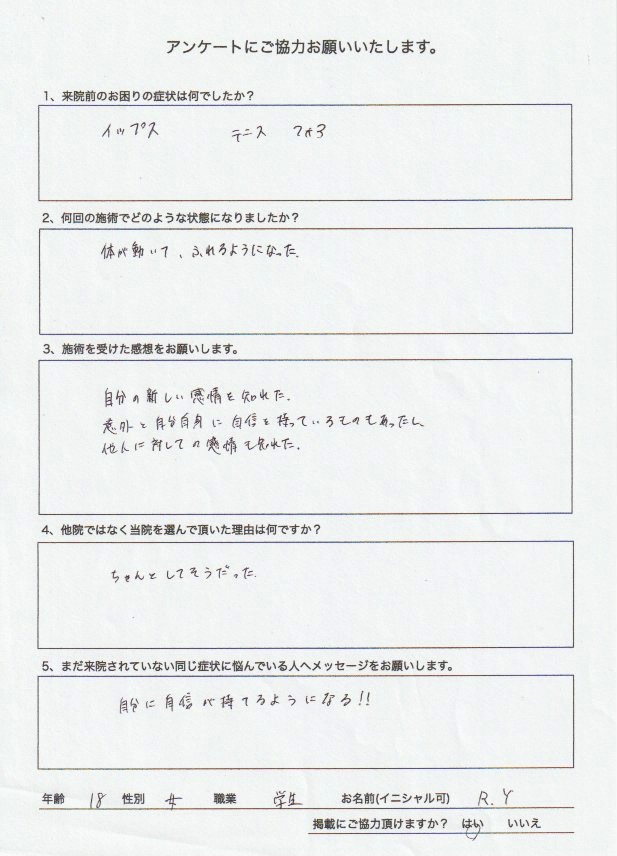 アンケートにご協力お願いいたします。
1、来院前のお困りの症状は何でしたか?
イップス テニス フォア
2、何回の施術でどのような状態になりましたか?
体が動いて、ふれるようになった.
3、施術を受けた感想をお願いします。
自分の新しい感情を知れた.
意外と自分自身に自信を持っているものもあったし、
他人に対しての感情も知れた.
4、他院ではなく当院を選んで頂いた理由は何ですか?
ちゃんとしてそうだった.
5、まだ来院されていない同じ症状に悩んでいる人へメッセージをお願いします。
自分に自信が持てるようになる!!
年齢 18 性別 女 職業 学生 お名前(イニシャル可) R.Y
掲載にご協力頂けますか? はい いいえ